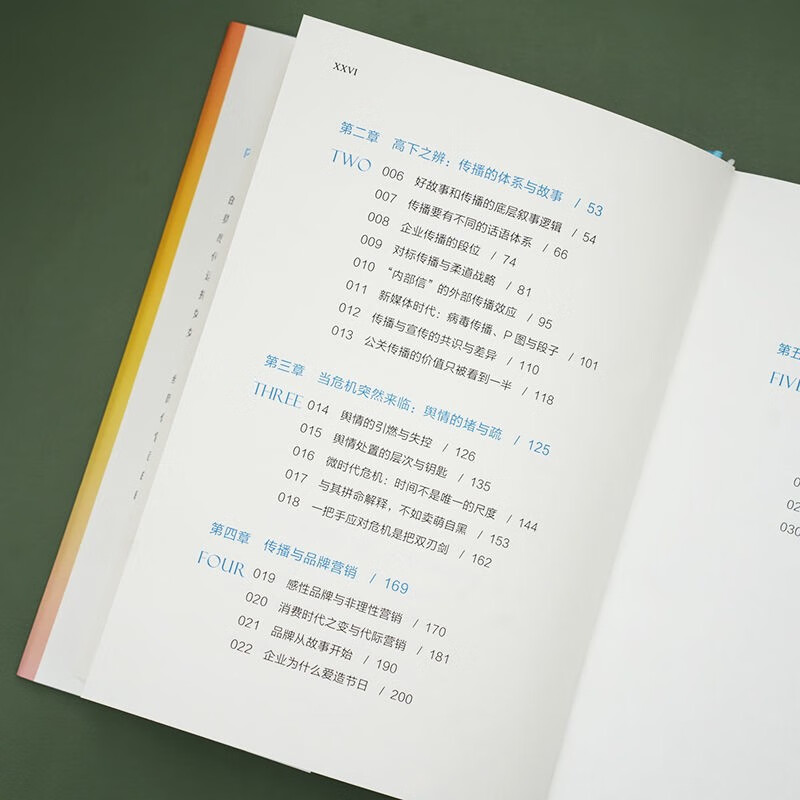 XXVI
第二章 高下之辨：传播的体系与故事 / 53
TWO
006 好故事和传播的底层叙事逻辑 / 54
007 传播要有不同的话语体系 / 66
008 企业传播的段位 / 74
009 对标传播与柔道战略 / 81
010 “内部信”的外部传播效应 / 95
011 新媒体时代：病毒传播、P图与段子 / 101
012 传播与宣传的共识与差异 / 110
013 公关传播的价值只被看到一半 / 118
第三章 当危机突然来临：舆情的堵与疏 / 125
THREE
014 舆情的引燃与失控 / 126
015 舆情处置的层次与钥匙 / 135
016 微时代危机：时间不是唯一的尺度 / 144
017 与其拼命解释，不如卖萌自黑 / 153
018 一把手应对危机是把双刃剑 / 162
第四章 传播与品牌营销 / 169
FOUR
019 感性品牌与非理性营销 / 170
020 消费时代之变与代际营销 / 181
021 品牌从故事开始 / 190
022 企业为什么爱造节日 / 200
第五
FIVE
02
030